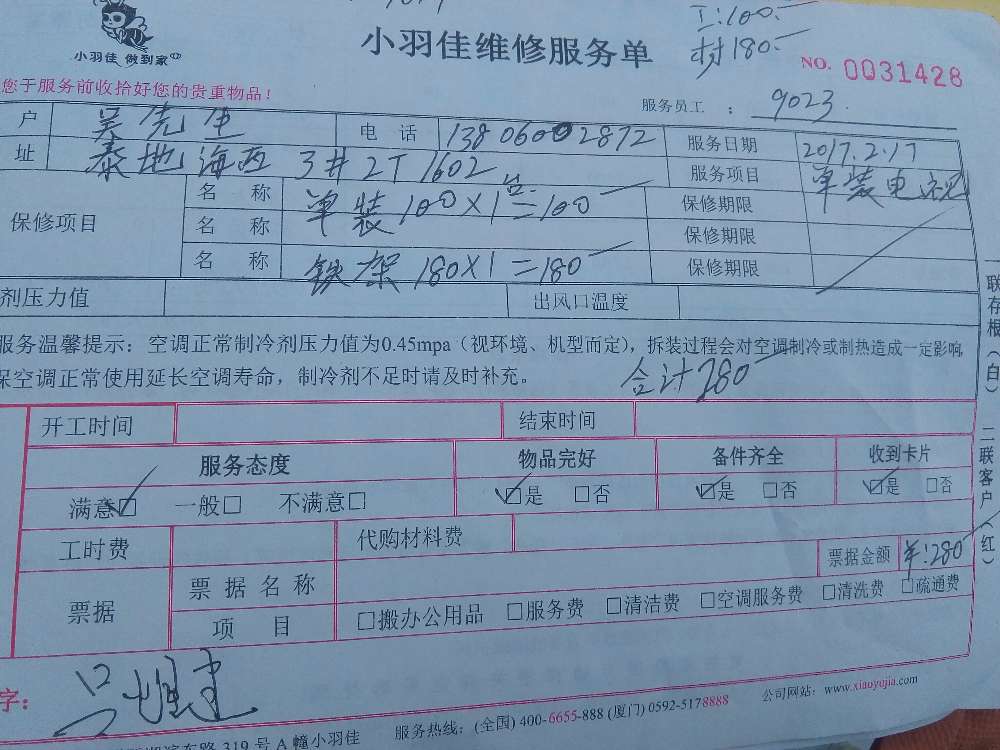 工:100.-
材180.-
小羽佳 做到家
小羽佳维修服务单
NO. 0031428
您于服务前收拾好您的贵重物品!
服务员工 : 9023
户 电话 13806002872 服务日期 2017.2.17
址 泰地海西 3# 2T 1602 服务项目 单装电视
保修项目 名称 单装 100X1台=100 保修期限
名称 保修期限
名称 铁架 180X1=180 保修期限
剂压力值 出风口温度
服务温馨提示:空调正常制冷剂压力值为0.45mpa(视环境、机型而定),拆装过程会对空调制冷或制热造成一定影响
保空调正常使用延长空调寿命,制冷剂不足时请及时补充。
合计280
开工时间 结束时间
服务态度 物品完好 备件齐全 收到卡片
满意☑ 一般□ 不满意□ ☑是 □否 ☑是 □否 ☑是 □否
工时费 代购材料费
票据金额 ¥:280
票据 票据名称
项目 □搬办公用品 □服务费 □清洁费 □空调服务费 □清洗费 □疏通费
字:
路 319 号 A 幢小羽佳 服务热线:(全国) 400-6655-888 (厦门) 0592-5178888 公司网站:www.xiaoyujia.com
一联存根(白) 二联客户(红)